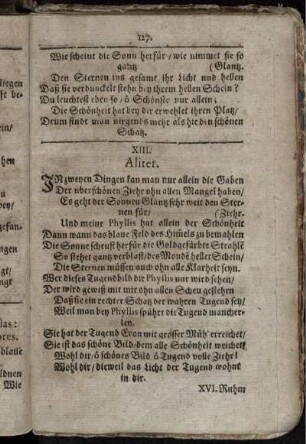 127.
Wie scheint die Sonn herfür/ wie nimmet sie so
gantz (Glantz.
Den Sternen ins gesamt ihr Licht und hellen
Daß sie verdunckelt stehn bey ihrem hellen Schein?
Du leuchtest eben so/ ô Schönste nur allein;
Die Schönheit hat bey dir erwehlet ihren Platz/
Drum findt man nirgends mehr als hie den schönen
Schatz.
XIII.
Aliter.
IN zweyen Dingen kan man nur allein die Gaben
Der überschönen Ziehr ohn allen Mangel haben/
Es geht der Sonnen Glantz sehr weit den Ster-
nen für/ (Ziehr.
Und meine Phyllis hat allein der Schönheit
Dann wann das blaue Feld des Him̃els zu bemahlen
Die Sonne schrufft herfür die Goldgefärbte Strahlẽ
So stehet gantz verblast/ des Monde heller Schein/
Die Sternen müssen auch ohn alle Klarheit seyn.
Wer dieses Tugendbild die Phyllis nur wird sehen/
Der wird gewiß mit mir ohn allen Scheu gestehen
Daß sie ein rechter Schatz der wahren Tugend sey/
Weil man bey Phyllis spührt die Tugend mancher-
ley.
Sie hat der Tugend Cron mit grosser Müh' erreichet/
Sie ist das schöne Bild/ dem alle Schönheit weichet/
Wohl dir/ ô schönes Bild ô Tugend volle Ziehr!
Wohl dir/ dieweil das Licht der Tugend wohnt
in dir.
XVI. Ruhm